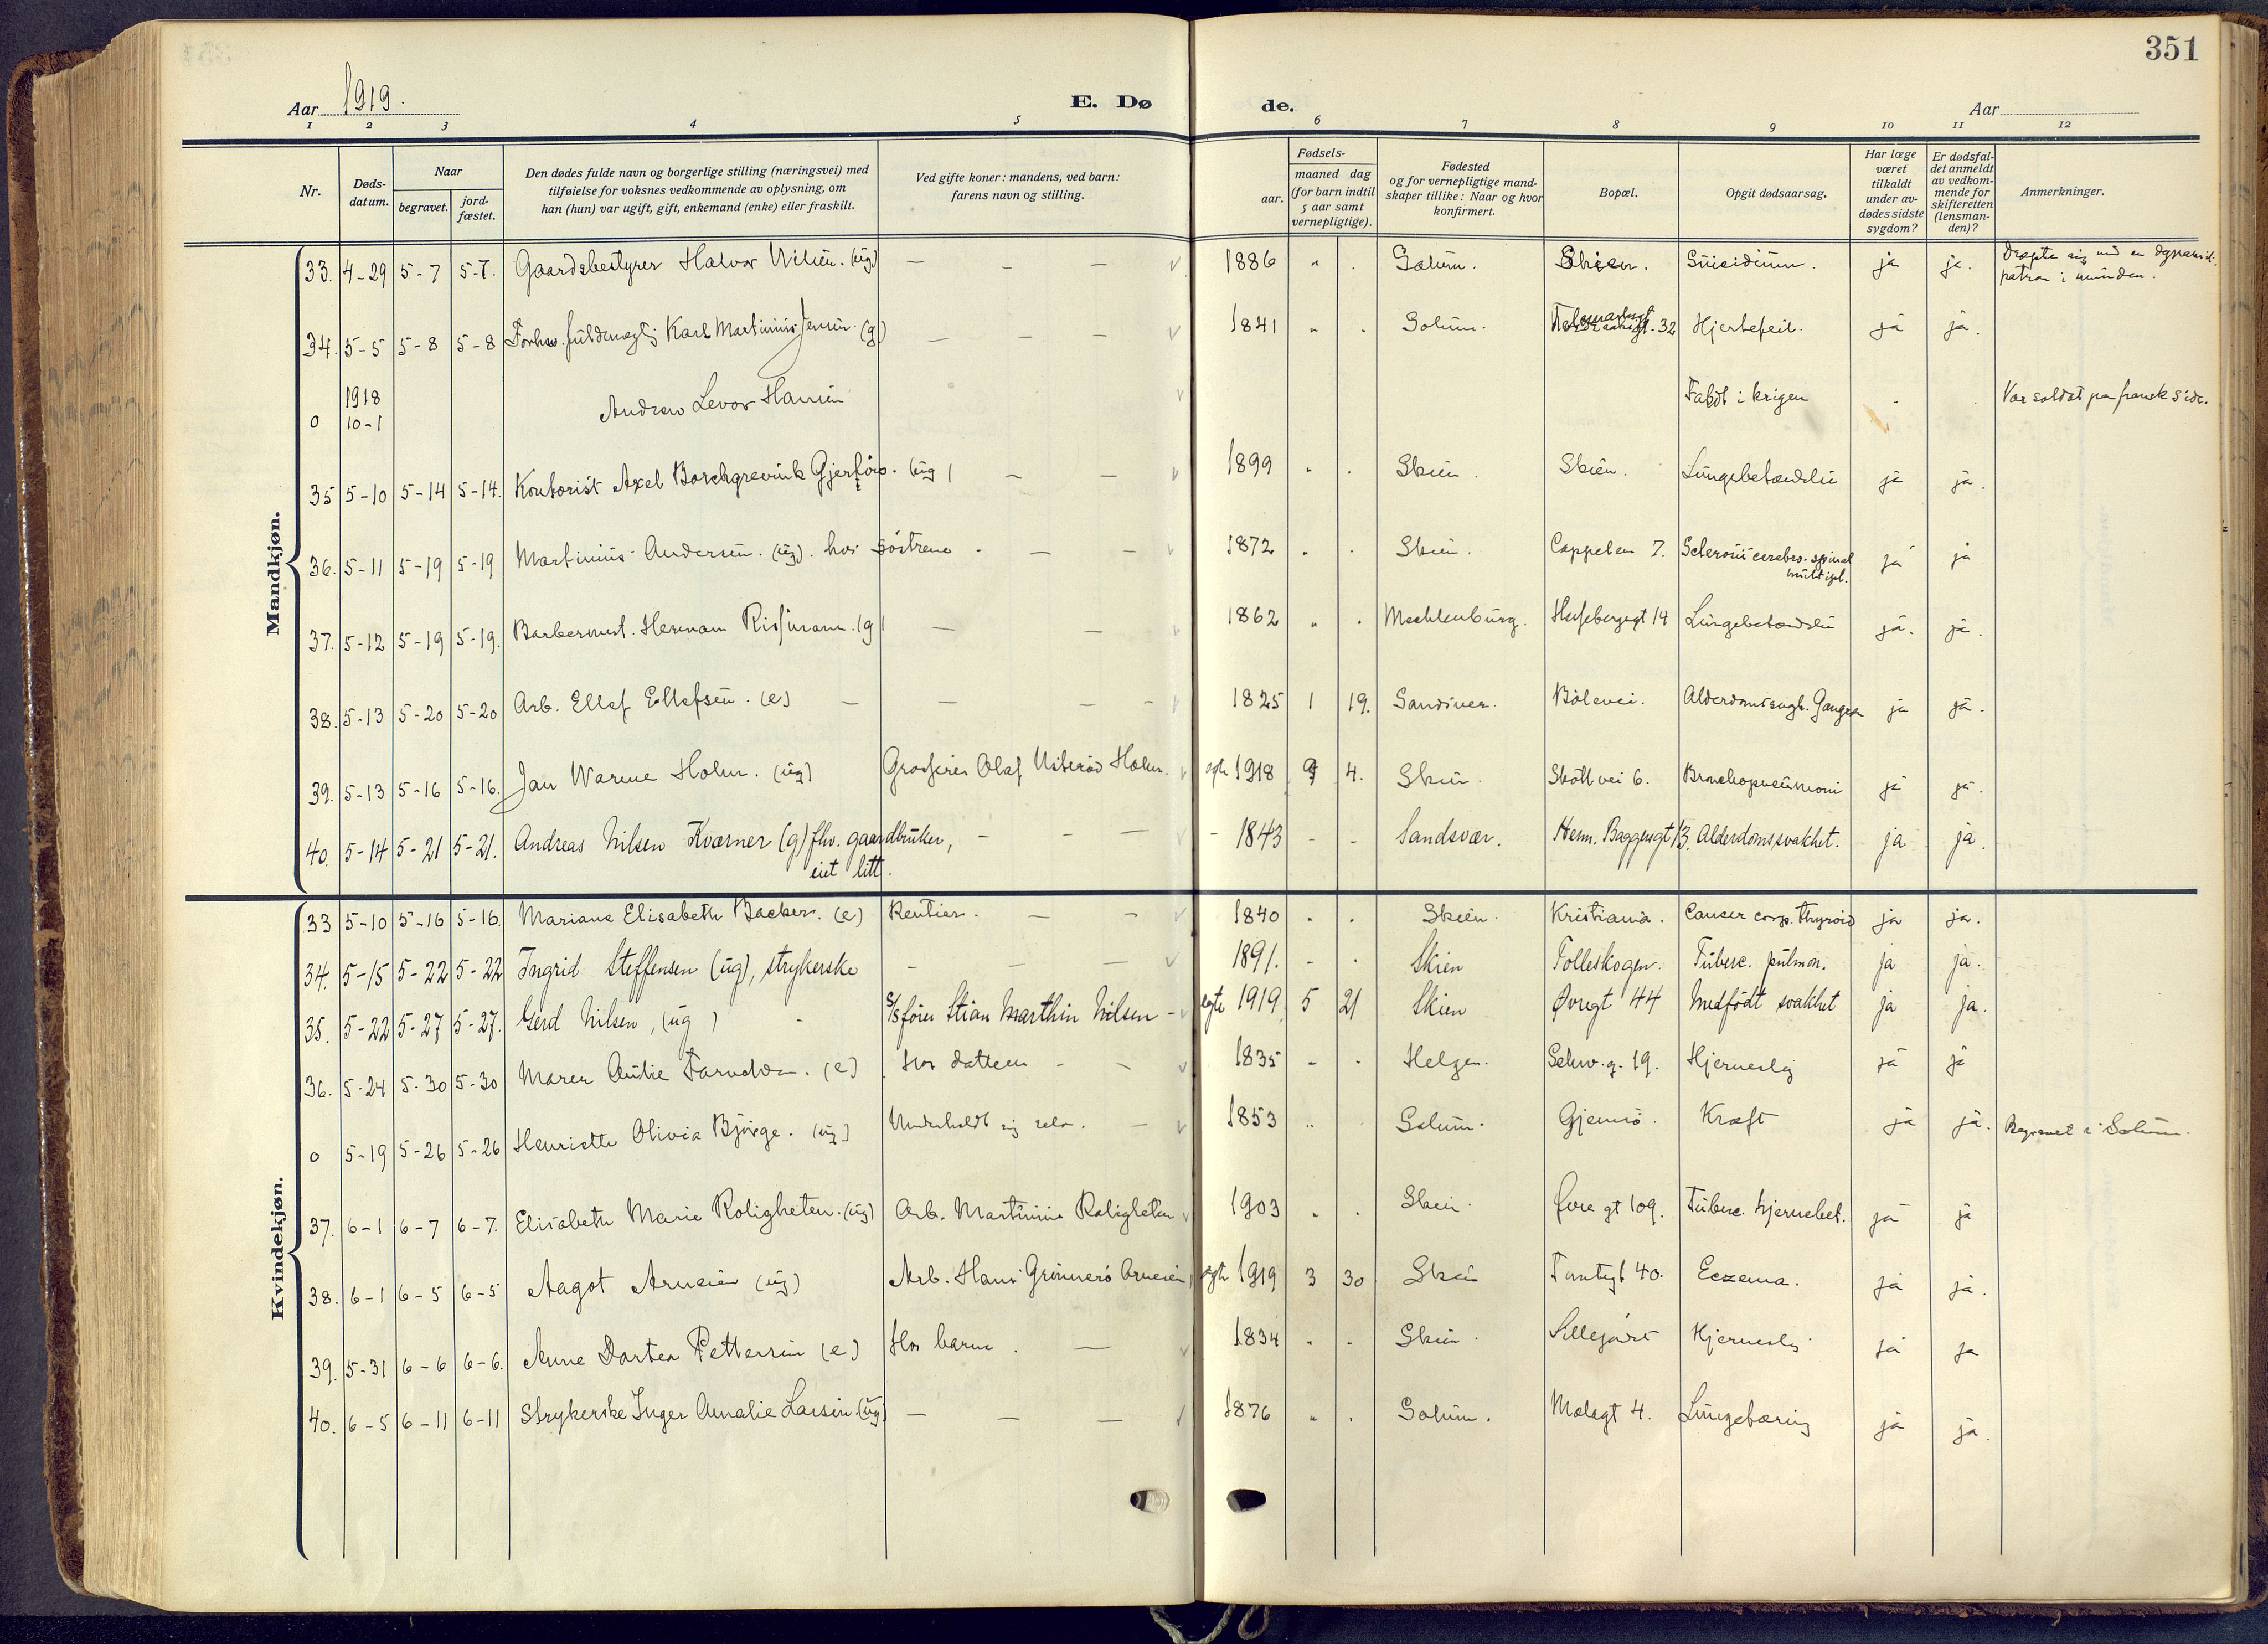 351
Aar 1919.
E. Dø de.
Aar
1 2 3 4 5 6 7 8 9 10 11 12
Nr.
Døds-
datum.
Naar
begravet.
jord-
fæstet.
Den dødes fulde navn og borgerlige stilling (næringsvei) med
tilføielse for voksnes vedkommende av oplysning, om
han (hun) var ugift, gift, enkemand (enke) eller fraskilt.
Ved gifte koner: mandens, ved barn:
farens navn og stilling.
Fødsels-
aar.
maaned dag
(for barn indtil
5 aar samt
vernepligtige).
Fødested
og for vernepligtige mand-
skaper tillike: Naar og hvor
konfirmert.
Bopæl.
Opgit dødsaarsag.
Har læge
været
tilkaldt
under av-
dødes sidste
sygdom?
Er dødsfal-
det anmeldt
av vedkom-
mende for
skifteretten
(lensman-
den)?
Anmerkninger.
Mandkjøn.
33. 4-29 5-7 5-7. Gaardsbestyrer Halvor (ug) — — — 1886 " . Solum. Skien. Suicidium. ja ja. Dræpte sig med en dynamit-
patron i munden.
34. 5-5 5-8 5-8 fuldmægtig Karl Martinius Jensen. (g) — — — 1841 " . Solum. 32 Hjertefeil. ja ja.
0 1918
10-1 Andrew Levor Hansen Faldt i krigen Var soldat paa fransk side.
35 5-10 5-14 5-14. Kontorist Axel Borchgrevink (ug) — — 1899 " . Skien. Skien. Lungebetændelse ja ja.
36. 5-11 5-19 5-19 Martinius Andersen. (ug). hos søstrene — — 1872 " . Skien. Cappelens 7. cerebro-spinal
multipl. ja ja
37. 5-12 5-19 5-19. Barbermest. Herman (g) — — 1862 " . Mecklenburg. 14 Lungebetændelse ja. ja.
38. 5-13 5-20 5-20 Arb. Ellef Ellefsen. (e) — — — 1825 1 19. Sandsvær. Bølevei. Gangræn ja ja.
39. 5-13 5-16 5-16. Jan Warme Holm. (ug) Grosserer Olaf Holm. egte 1918 9 4. Skien. Skottvei 6. Bronchopneumoni ja ja.
40. 5-14 5-21 5-21. Andreas Nilsen Kværner (g) fhv. gaardbruker,
eiet litt. - - — - 1843 - - Sandsvær. Herm. Baggesgt 13. Alderdomssvakhet. ja ja.
Kvindekjøn.
33 5-10 5-16 5-16. Mariane Elisabeth Backer. (e) Rentier. — — 1840 " . Skien. Kristiania. Cancer corp. thyroid ja ja.
34. 5-15 5-22 5-22 Ingrid Steffensen (ug), strykerske - — — 1891. - . Skien Folleskogen. Tuberc. pulmon. ja ja.
35. 5-22 5-27 5-27. Gerd Nilsen, (ug) - S/S fører Stian Marthin Nilsen - egte 1919 5 21 Skien Øvregt 44 Medfødt svakhet ja ja.
36. 5-24 5-30 5-30 Maren (e) Hos datteren - - 1835 - . Helgen. 19. Hjerneslag ja ja
0 5-19 5-26 5-26 Henriette Olivia Bjørge. (ug) Underholdt sig selv. — 1853 " Solum. Gjemsø. Kræft ja ja. Begravet i Solum.
37. 6-1 6-7 6-7. Elisabeth Marie Roligheten. (ug) Arb. Martinius Roligheten 1903 " . Skien. Øvre gt 109. Tuberc. hjernebet. ja ja
38. 6-1 6-5 6-5 Aagot Arnesen (ug) Arb. Hans Arnesen egte 1919 3 30 Skien 40. Eczema. ja ja.
39. 5-31 6-6 6-6. Anne Dortea Pettersen (e) Hos barna. — 1834 " - Skien. Hjerneslag ja ja
40. 6-5 6-11 6-11 Strykerske Inger Amalie Larsen (ug) — — — 1876 " . Solum. Mælagt 4. Lungetæring ja ja.